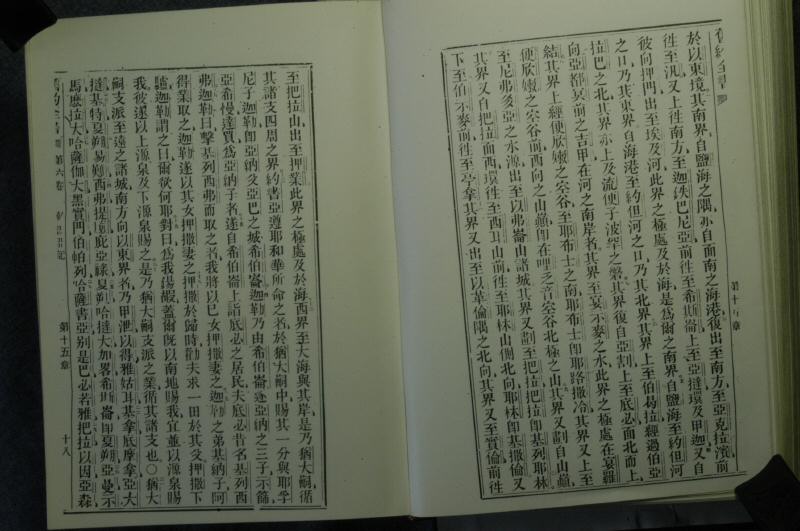 於以東境其南界自鹽海之隅亦自面南之海港復出至南方至亞克拉濱前
徃至汎又上徃南方至迦鉄巴尼亞前徃至希斯崙上至亞撻環及甲迦又自
彼向押門出至埃及河此界之極處及於海是爲爾之南界自鹽海至約但河
之口乃其東界自海港至約但河之口乃其北界其界上至伯曷拉經過伯亞
拉巴之北其界亦上及流便子波罕之磐其界復自亞割上至底必面北而上
向亞都冥前之吉甲在河之南岸者其界至宴示麥之水此界之極處在宴羅
結其界上經便欣嫩之宊谷至耶布士之南耶布士卽耶路撒冷其界又上至
便欣嫩之宊谷前西向之山巔卽在哩乏音宊谷北極之山其界又劃自山巔
至尼弗多亞之水源出至以弗崙山諸城其界又劃至把拉把拉卽基列耶林
其界又自把拉面西環徃至西耳山前徃至耶林山側北向耶林卽基撒倫又
下至伯示麥前徃至亭拿其界又出至以革倫隅之北向其界又至實倫前徃
第十五章
至把拉山出至押業此界之極處及於海西界至大海與其岸是乃猶大嗣循
其諸支四周之界約書亞遵耶和華所命之者於猶大嗣中賜其一分與耶孚
尼子迦勒卽亞納父亞巴之城希伯崙迦勒乃由希伯崙逐亞納之三子示篩
亞希慢達買爲亞納子者遂自希伯崙上詣底必之居民夫底必昔名基列西
弗迦勒曰擊基列西弗而取之者我將以已女押撒妻之迦勒之弟基納子阿
得業取之迦勒遂以其女押撒妻之押撒於歸時勸夫求一田於其父押撒下
驢迦勒謂之曰爾欲何耶對曰爲我錫嘏蓋爾旣以南地賜我宜並以源泉賜
我彼遂以上源泉及下源泉賜之是乃猶大嗣支派之業循其諸支也〇猶大
嗣支派至遠之諸城南方向以東界者乃甲泄以得雅姑耳基拿底摩拿亞大
撻基特夏朔易難西弗提
馬
第六卷
第十五章
十八